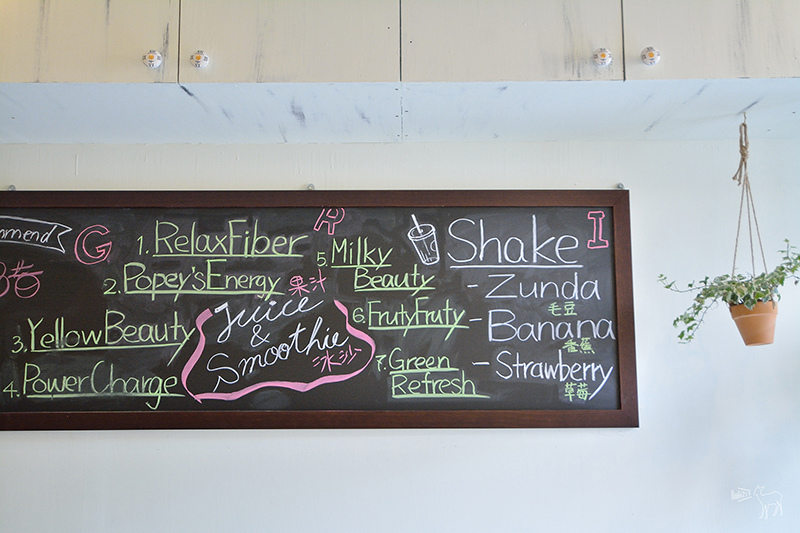 G
R
I
1. RelaxFiber
2. Popey'sEnergy
3. YellowBeauty
4. PowerCharge
果汁
Juice
&
Smoothie
冰沙
5. Milky
Beauty
6. FrutyFruty
7. Green
Refresh
Shake
- Zunda
毛豆
- Banana
香蕉
- Strawberry
草莓